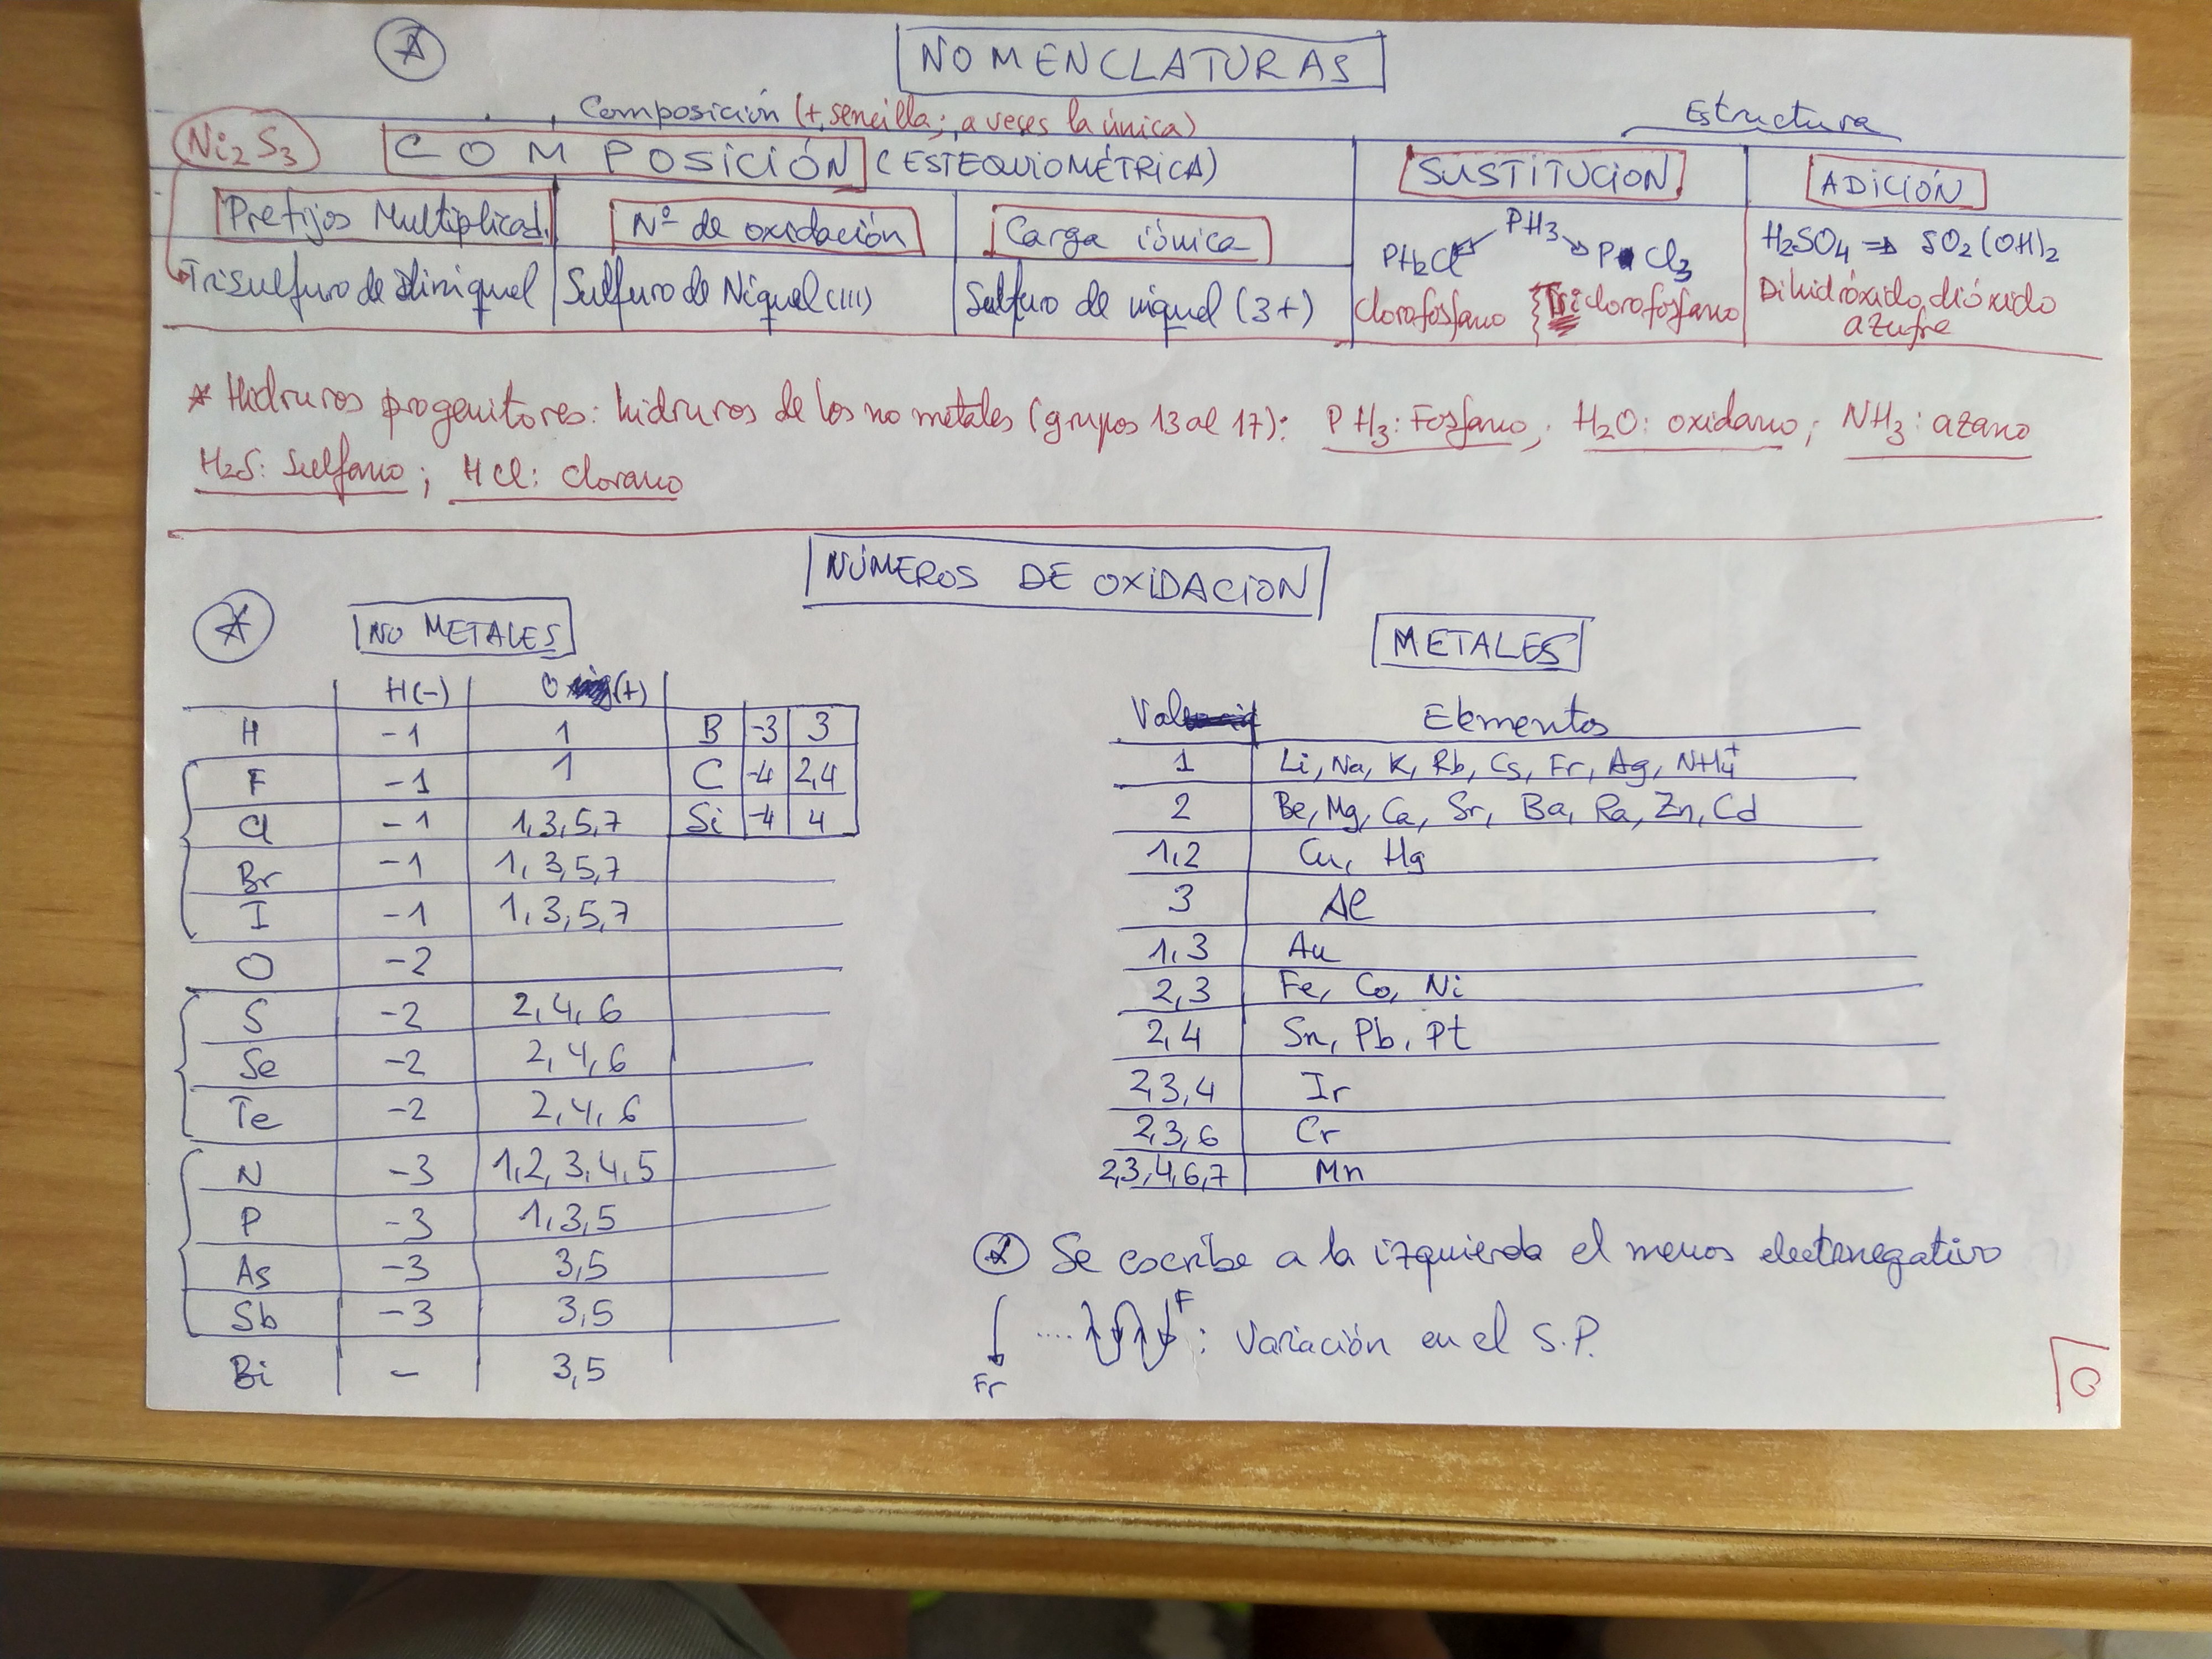 NOMENCLATURAS
Composición (+ sencilla; a veces la única)
Estructura
Ni2S3
COMPOSICIÓN (ESTEQUIOMÉTRICA)
SUSTITUCION
ADICIÓN
Prefijos Multiplicad.
Nº de oxidación
Carga iónica
PH3
PH2Cl
PCl3
H2SO4 ⇒ SO2(OH)2
Trisulfuro de diniquel
Sulfuro de Niquel (III)
Sulfuro de niquel (3+)
Clorofosfano
Triclorofosfano
Dihidróxido, dióxido
azufre
* Hidruros progenitores: hidruros de los no metales (grupos 13 al 17): PH3: Fosfano; H2O: oxidano; NH3: azano
H2S: Sulfano; HCl: clorano
NÚMEROS DE OXIDACION
NO METALES
H(-) O (+)
H -1 1 B -3 3
F -1 1 C -4 2,4
Cl -1 1,3,5,7 Si -4 4
Br -1 1,3,5,7
I -1 1,3,5,7
O -2
S -2 2,4,6
Se -2 2,4,6
Te -2 2,4,6
N -3 1,2,3,4,5
P -3 1,3,5
As -3 3,5
Sb -3 3,5
Bi - 3,5
METALES
Val Elementos
1 Li, Na, K, Rb, Cs, Fr, Ag, NH4+
2 Be, Mg, Ca, Sr, Ba, Ra, Zn, Cd
1,2 Cu, Hg
3 Al
1,3 Au
2,3 Fe, Co, Ni
2,4 Sn, Pb, Pt
2,3,4 Ir
2,3,6 Cr
2,3,4,6,7 Mn
* Se escribe a la izquierda el menos electronegativo
F
.... : Variación en el S.P.
Fr
0